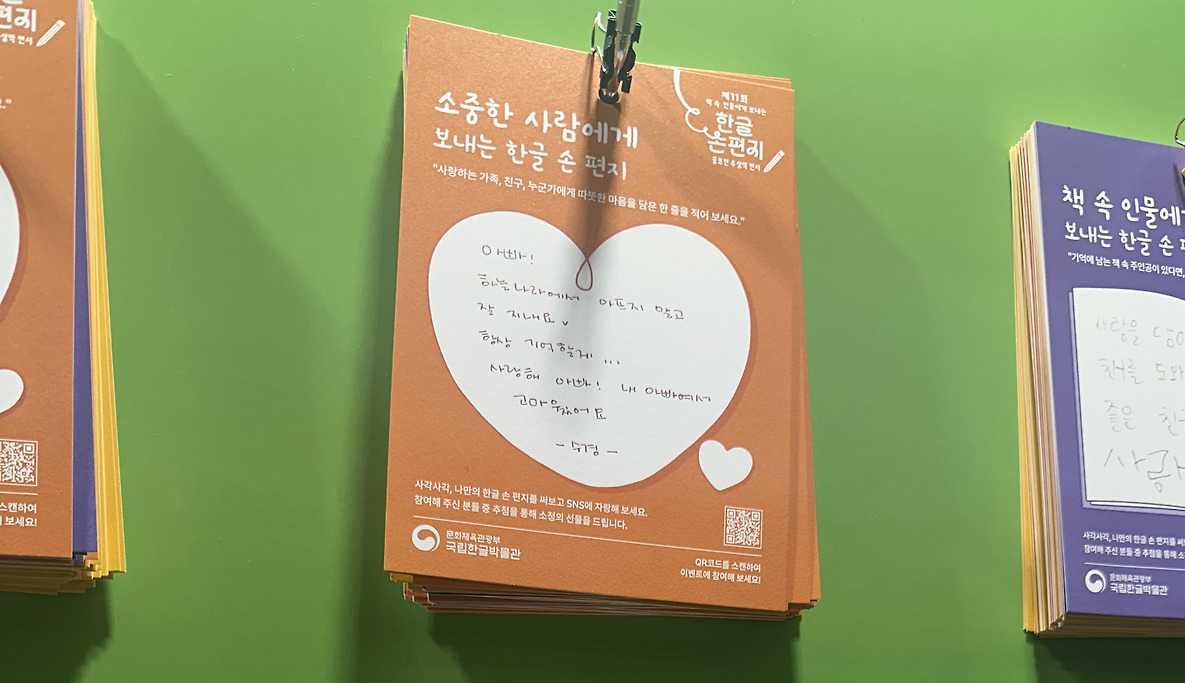 편지
성작 엽서
스캔하여
보세요!
소중한 사람에게
보내는 한글 손 편지
"사랑하는 가족, 친구, 누군가에게 따뜻한 마음을 담은 한 줄을 적어 보세요."
제11회
책 속 인물에게 보내는
한글
손편지
공모전 수상작 엽서
아빠!
하늘나라에서 아프지 말고
잘 지내요
항상 기억할게 ...
사랑해 아빠! 내 아빠여서
고마웠어요
- 수경 -
사각사각, 나만의 한글 손 편지를 써보고 SNS에 자랑해 보세요.
참여해 주신 분들 중 추첨을 통해 소정의 선물을 드립니다.
문화체육관광부
국립한글박물관
QR코드를 스캔하여
이벤트에 참여해 보세요!
책 속 인물에게
보내는 한글 손
"기억에 남는 책 속 주인공이 있다면,
사람을
친구를 도와
좋은 친구
사각사각, 나만의 한글 손 편지를 써
참여해 주신 분들 중 추첨을 통해 소
문화체육관광부
국립한글박물관